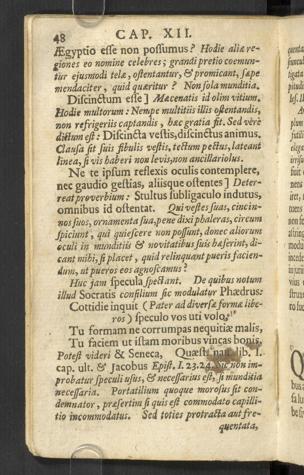 48 CAP. XII.
Ægyptio esse non possumus? Hodie aliæ re-
giones eo nomine celebres; grandi pretio coemun-
tur ejusmodi telæ, ostentantur, & promicant, sæpe
mendaciter, quid quæritur? Non sola munditia.
Discinctum esse] Mæcenatis id olim vitium,
Hodie multorum: Nempe multitiis illis ostentandis,
non refrigeriis captandis, hæc gratia fit. Sed verè
dictum est: Discincta vestis, discinctus animus.
Clausa sit suis fibulis vestis, tectum pectus, lateant
linea, si vis haberi non levis, non ancillariolus.
Ne te ipsum reflexis oculis contemplere,
nec gaudio gestias, aliisque ostentes] Deter-
reat proverbium: Stultus subligaculo indutus,
omnibus id ostentat. Qui vestes suas, cincin-
nos suos, ornamenta sua, pene dixi phaleras, circum
spiciunt, qui quiescere non possunt, donec aliorum
oculi in munditiis & novitatibus suis hæserint, di-
cant mihi, si placet, quid relinquant pueris facien-
dum, ut pueros eos agnoscamus?
Huc jam specula spectant. De quibus notum
illud Socratis consilium sic modulator Phædrus:
Cottidie inquit (Pater ad diversæ formæ libe-
ros) speculo vos uti volo:
Tu formam ne corrumpas nequitiæ malis,
Tu faciem ut istam moribus vincas bonis.
Potest videri & Seneca, Quæst. nat. lib. I.
cap. ult. & Jacobus Epist. I. 23. 24. non im-
probatur speculi usus, & necessarius est, si munditia
necessaria. Portatilium quoque morosus sit con-
demnator, præsertim si quis est commodato capilli-
tio incommodatus. Sed toties protracta aut fre-
quentata,